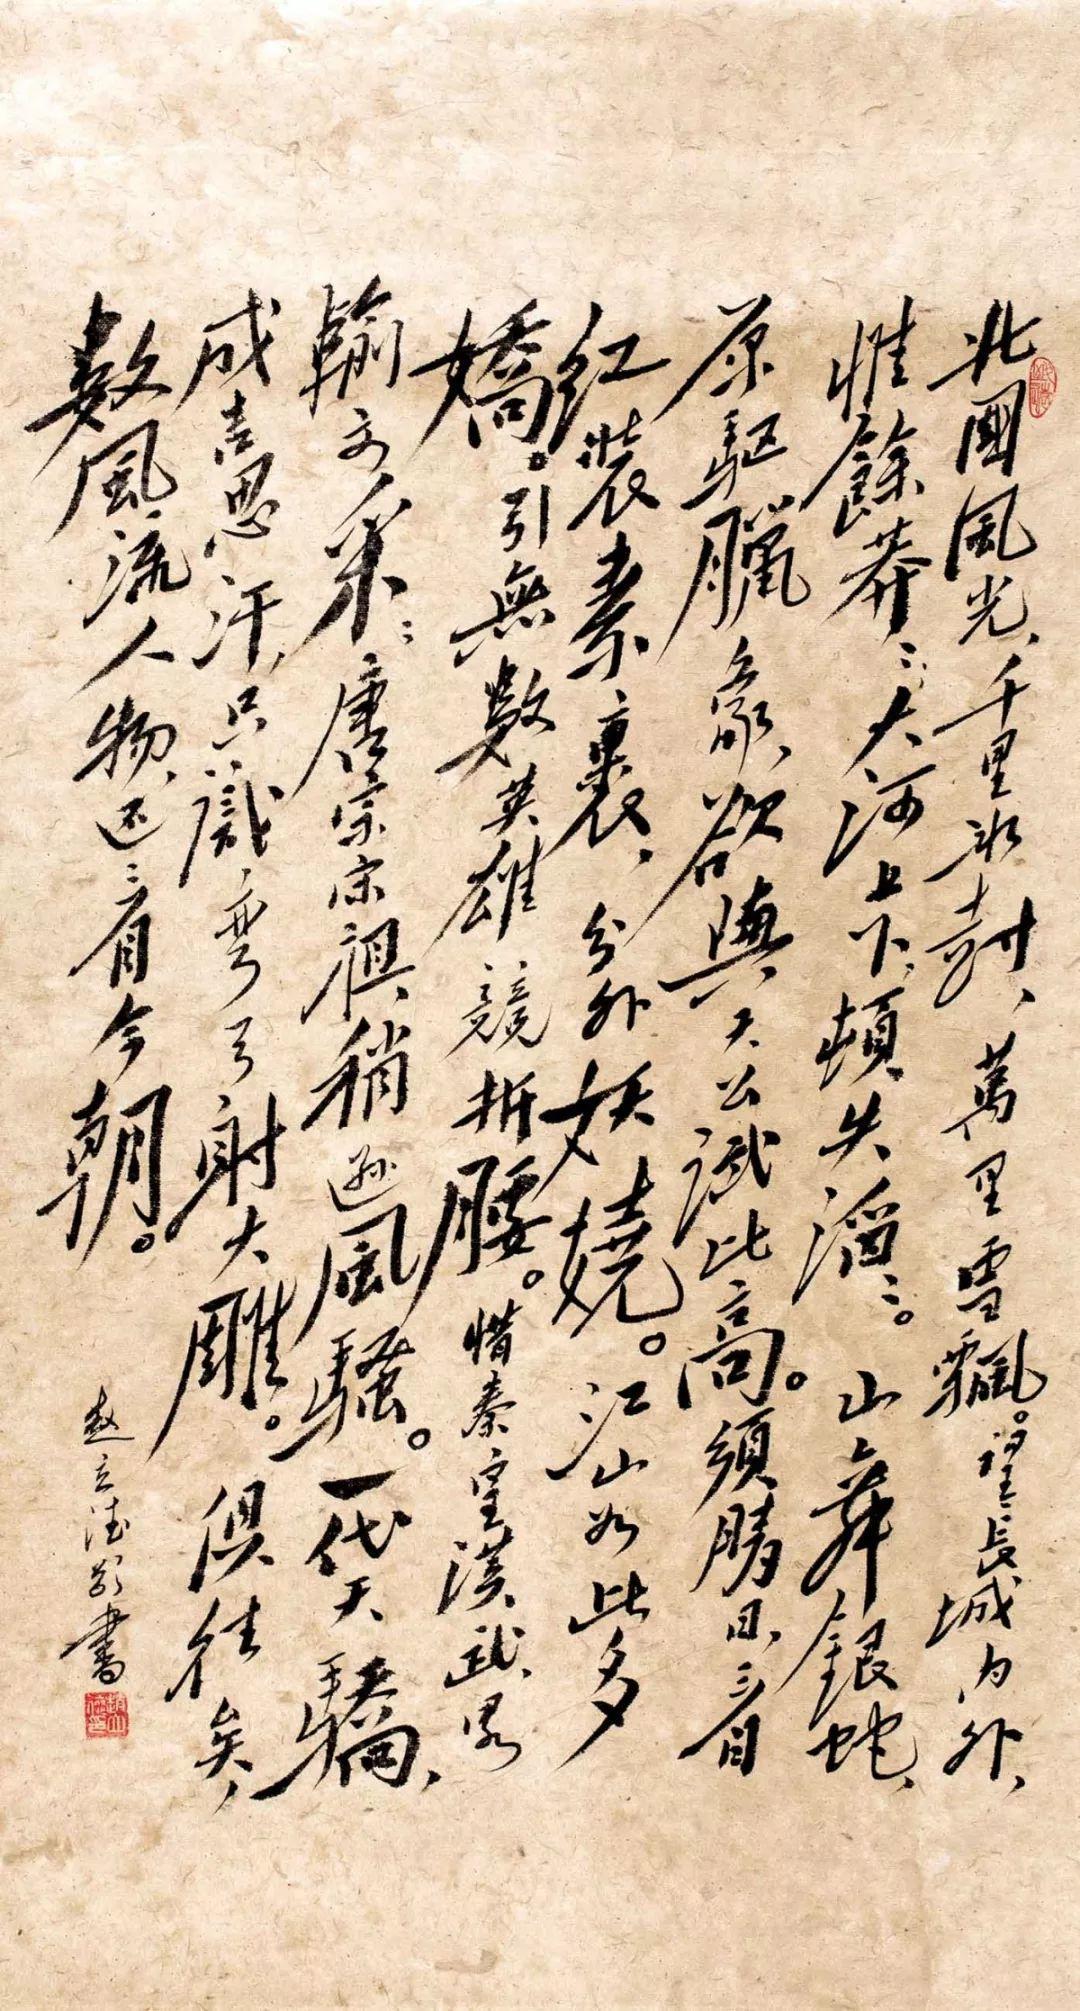 北國風光，千里冰封，萬里雪飄。望長城内外，
惟餘莽ミ；大河上下，頓失滔ミ。山舞銀蛇，
原驅臘象，欲與天公試比高。須晴日，看
紅裝素裹，分外妖嬈。江山如此多
嬌。引無數英雄競折腰。惜秦皇漢武，畧
輸文采；唐宗宋祖，稍遜風騷。一代天驕，
成吉思汗，只識彎弓射大雕。俱往矣，
數風流人物，还看今朝。
赵立德 書